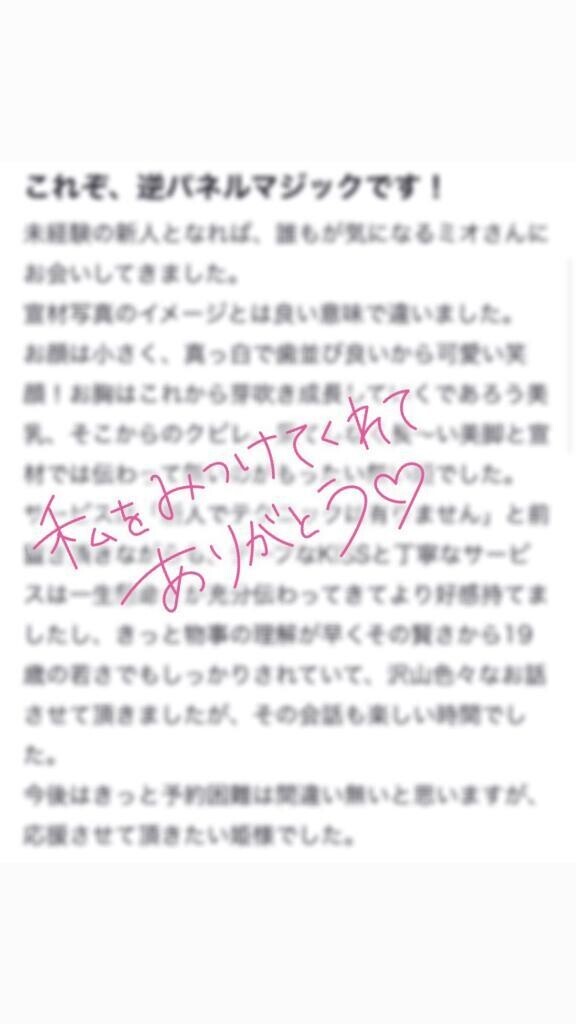 これぞ、逆パネルマジックです！
未経験の新人となれば、誰もが気になるミオさんに
お会いしてきました。
宣材写真のイメージとは良い意味で違いました。
お顔は小さく、真っ白で歯並び良いから可愛い笑
顔！お胸はこれから芽吹き成長していくであろう美
乳、そこからのクビレ
い美脚と宣
材では伝わって
でした。
私をみつけてくれて
ありがとう♡
人でテクニックは有りません」と前
なKISSと丁寧なサービ
スは一生懸命さが充分伝わってきてより好感持てま
したし、きっと物事の理解が早くその賢さから19
歳の若さでもしっかりされていて、沢山色々なお話
させて頂きましたが、その会話も楽しい時間でし
た。
今後はきっと予約困難は間違い無いと思いますが、
応援させて頂きたい姫様でした。